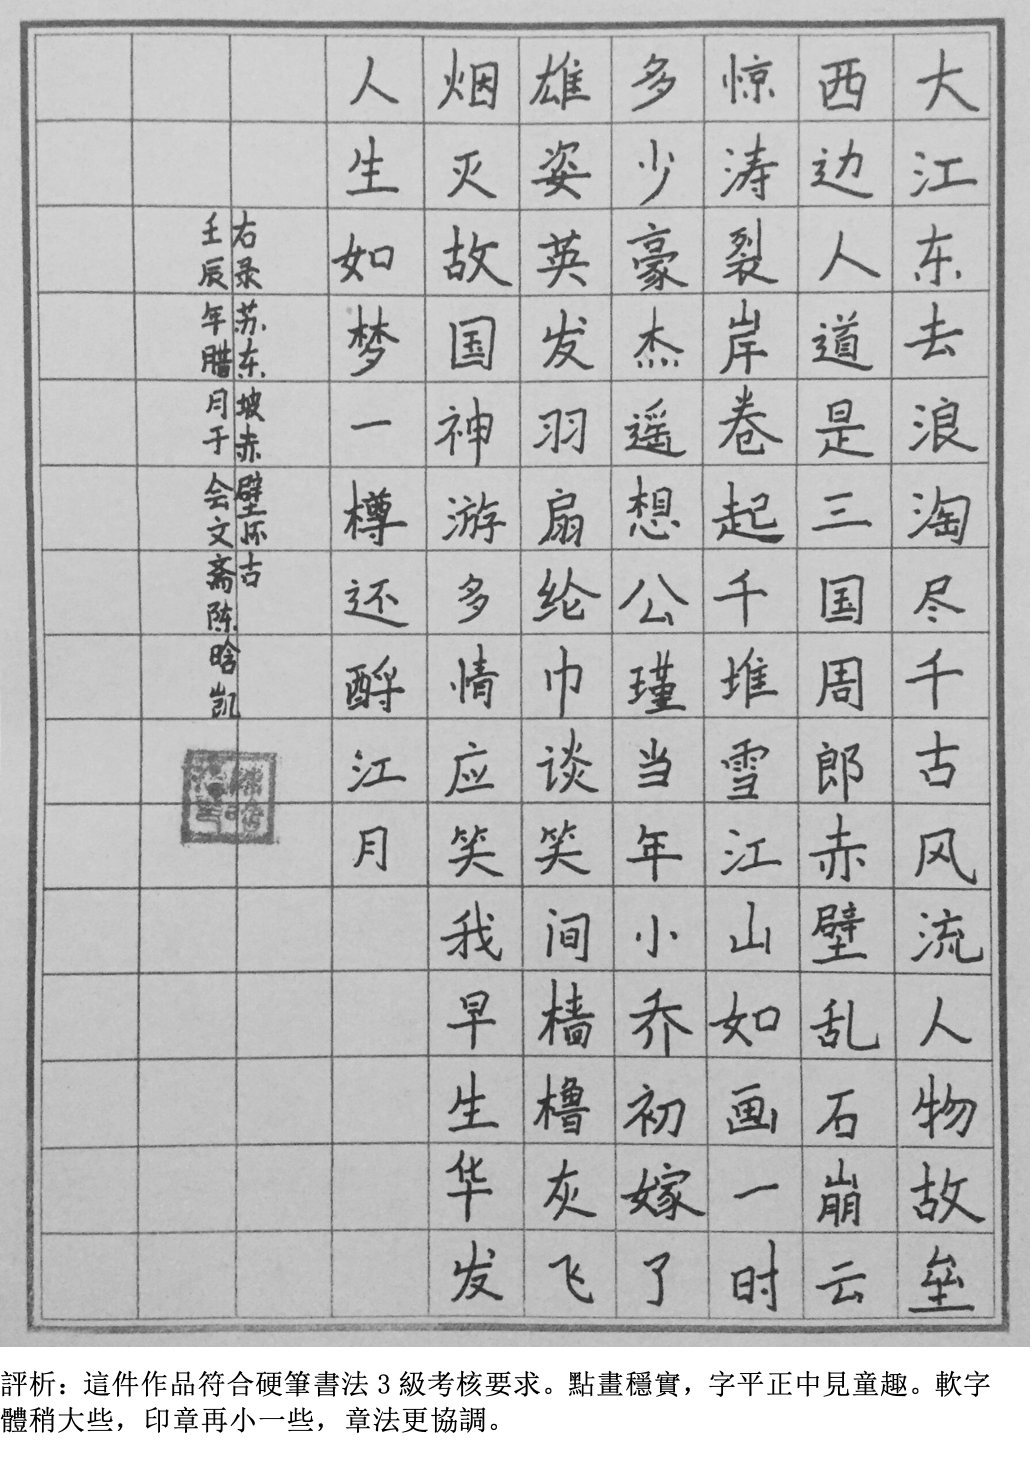 大江东去浪淘尽千古风流人物故垒
西边人道是三国周郎赤壁乱石崩云
惊涛裂岸卷起千堆雪江山如画一时
多少豪杰遥想公瑾当年小乔初嫁了
雄姿英发羽扇纶巾谈笑间樯橹灰飞
烟灭故国神游多情应笑我早生华发
人生如梦一樽还酹江月
右录苏东坡赤壁怀古
壬辰年腊月于会文斋陈晗凯
評析：這件作品符合硬筆書法3級考核要求。點畫穩實，字平正中見童趣。軟字
體稍大些，印章再小一些，章法更協調。